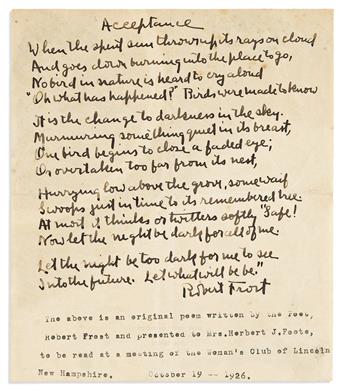 Acceptance
When the spent sun throws up its rays on cloud
And goes down burning into the place to go,
No bird in nature is heard to cry aloud
"Oh what has happened?" Birds were made to know
It is the change to darkness in the sky.
Murmuring something quiet in its breast,
One bird begins to close a faded eye;
Or overtaken too far from its nest,
Hurrying low above the grove, some waif
Swoops just in time to its remembered tree.
At most it thinks or twitters softly "Safe!
Now let the night be dark for all of me.
Let the night be too dark for me to see
Into the future. Let what will be be."
Robert Frost
The above is an original poem written by the Poet,
Robert Frost and presented to Mrs.Herbert J.Foote,
to be read at a meeting of the Woman's Club of Lincoln
New Hampshire. October 19 -- 1926.